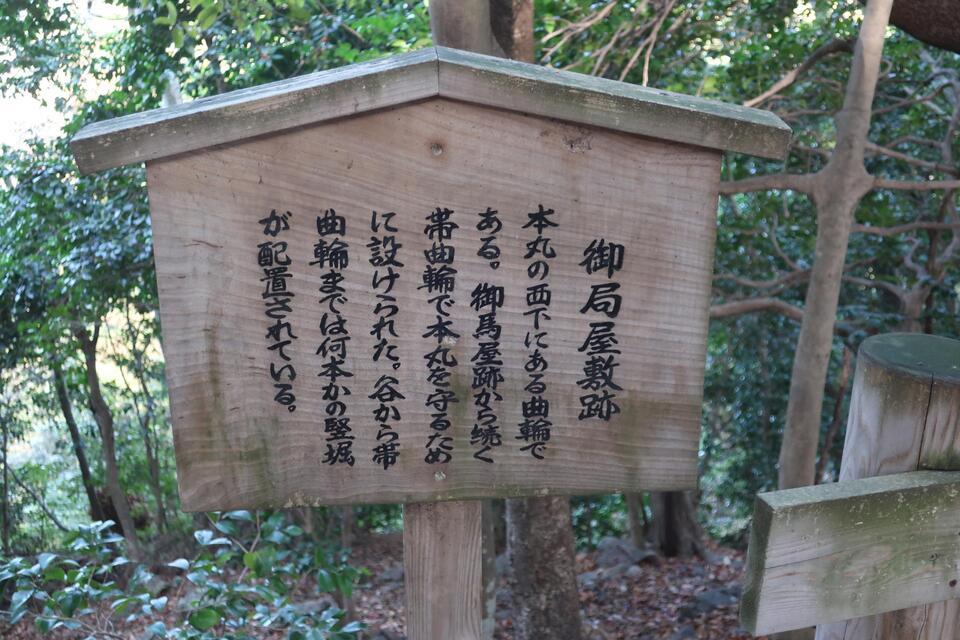 御局屋敷跡
本丸の西下にある曲輪で
ある。御馬屋跡から続く
帯曲輪で本丸を守るため
に設けられた。谷から帯
曲輪までは何本かの堅堀
が配置されている。